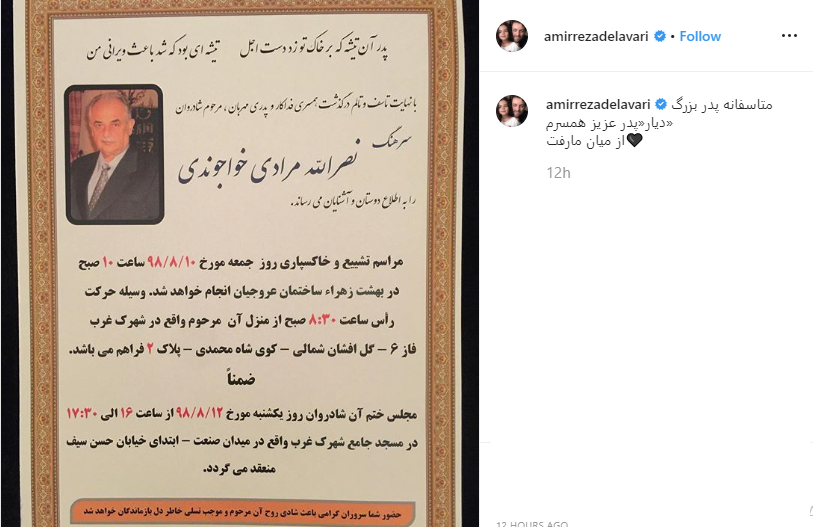 پدر آن تیشه که بر خاک تو زد دست اجل تیشه ای بود که شد باعث ویرانی من
با نهایت تاسف و تالم درگذشت همسری فداکار و پدری مهربان ، مرحوم شادروان
سرهنگ
نصرالله مرادی خواجوندی
را به اطلاع دوستان و آشنایان می رساند.
مراسم تشییع و خاکسپاری روز جمعه مورخ ۹۸/۸/۱۰ ساعت ۱۰ صبح
در بهشت زهراء ساختمان عروجیان انجام خواهد شد. وسیله حرکت
رأس ساعت ۸:۳۰ صبح از منزل آن مرحوم واقع در شهرک غرب
فاز ۶ – گل افشان شمالی – کوی شاه محمدی – پلاک ۲ فراهم می باشد.
ضمناً
مجلس ختم آن شادروان روز یکشنبه مورخ ۹۸/۸/۱۲ از ساعت ۱۶ الی ۱۷:۳۰
در مسجد جامع شهرک غرب واقع در میدان صنعت – ابتدای خیابان حسن سیف
منعقد می گردد.
حضور شما سروران گرامی باعث شادی روح آن مرحوم و موجب تسلی خاطر دل بازماندگان خواهد شد
amirrezadelavari • Follow
amirrezadelavari متاسفانه پدر بزرگ
«دیار»پدر عزیز همسرم
از میان مارفت🖤
12h
12 HOURS AGO